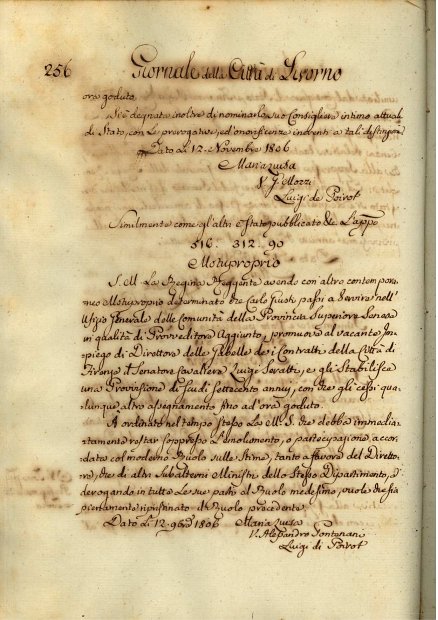 256 Giornale della Città di Livorno
ora goduto.
Si è degnata inoltre di nominarlo suo Consigliere intimo attuale
di Stato, con le prerogative, ed onorificenze inerenti a tali distinzioni
Dato li 12. Novembre 1806
Maria Luisa
V. J.
Luigi de Poirot
Similmente come gl'altri è stato pubblicato
516. 312. 90
Motuproprio
S. M. La Regina Reggente avendo con altro contempora-
neo Motuproprio determinato che Carlo Giusti passi a servire nell'
Ufizio Generale delle Comunità della Provincia Superiore Senese
in qualità di Provveditore Aggiunto, promuove al vacante Im-
piego di Direttore delle Gabelle de i Contratti della Città di
Firenze il Senatore Cavaliere Luigi Seratti, e gli stabilisce
una Provvisione di scudi settecento annui, con che gli cessi qua-
lunque altro assegnamento fino ad'ora goduto.
A ordinato nel tempo stesso la M. S. che debba immedia-
tamente restar soppresso l'emolumento, o partecipazione accor-
data col moderno Ruolo sulle Stime, tanto a favore del Diretto-
re, che di altri Subalterni Ministri dello stesso Dipartimento, e
derogando in tutte le sue parti al Ruolo medesimo, vuole che sia
ripristinato il Ruolo precedente.
Dato li 12 9bre 1806 Maria Luisa
V. Alessandro Pontenani
Luigi di Poirot